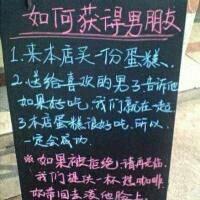 如何获得男朋友
1.来本店买一份蛋糕.
2.送给喜欢的男子告诉他
如果好吃,我们就在一起
3.本店蛋糕很好吃.所以
一定会成功.
※如果被拒绝,请再光临.
我们提供一杯热咖啡
你带回去泼他脸上.